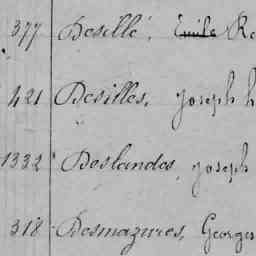 377 Desillé, Emile Re
421 Désilles, Joseph
1332 Deslandes, Joseph
318 Desmazures, Georges